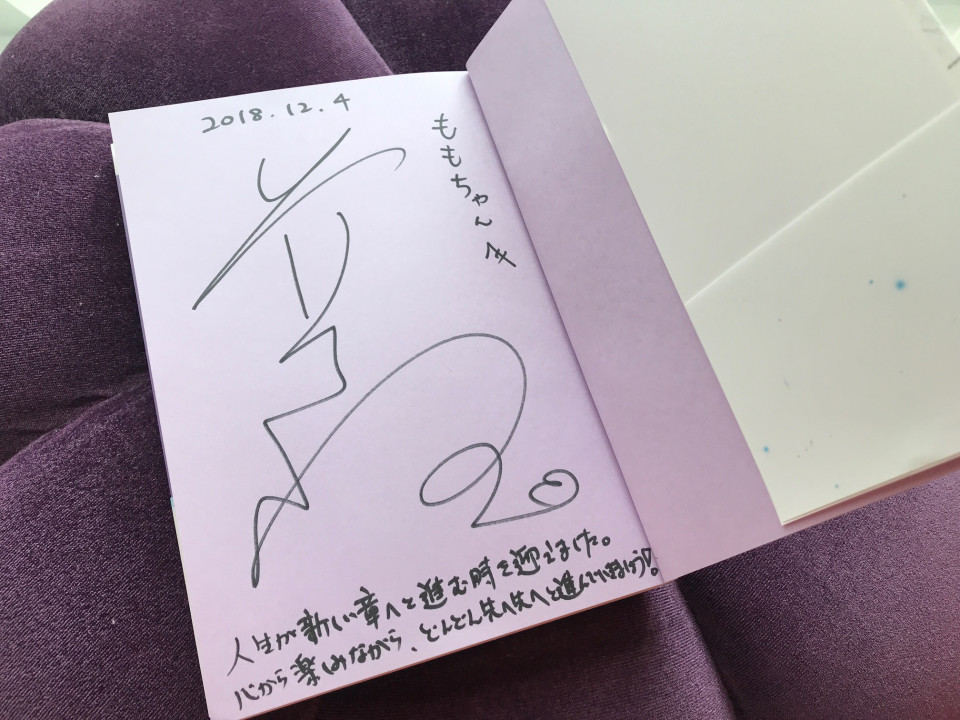 2018.12.4
ももちゃんへ
人生が新しい章へと進む時を迎えました。
心から楽しみながら、どんどん先へ先へと進んでいきましょう!!